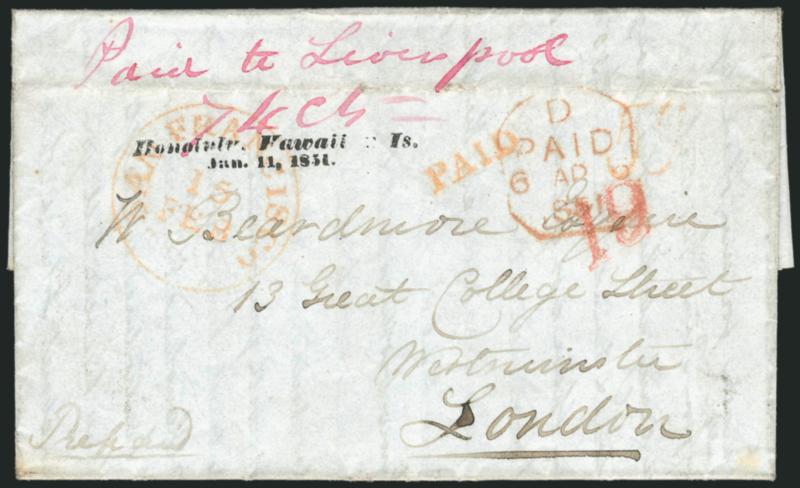 Paid to Liverpool
74 cts
Honolulu, Hawaiian Is.
Jan. 11, 1851.
SAN FRANCISCO
15
FEB
PAID
D
PAID
6 AP 6
1851
19
W Beardmore Esquire
13 Great College Street
Westminster
London
Prepaid